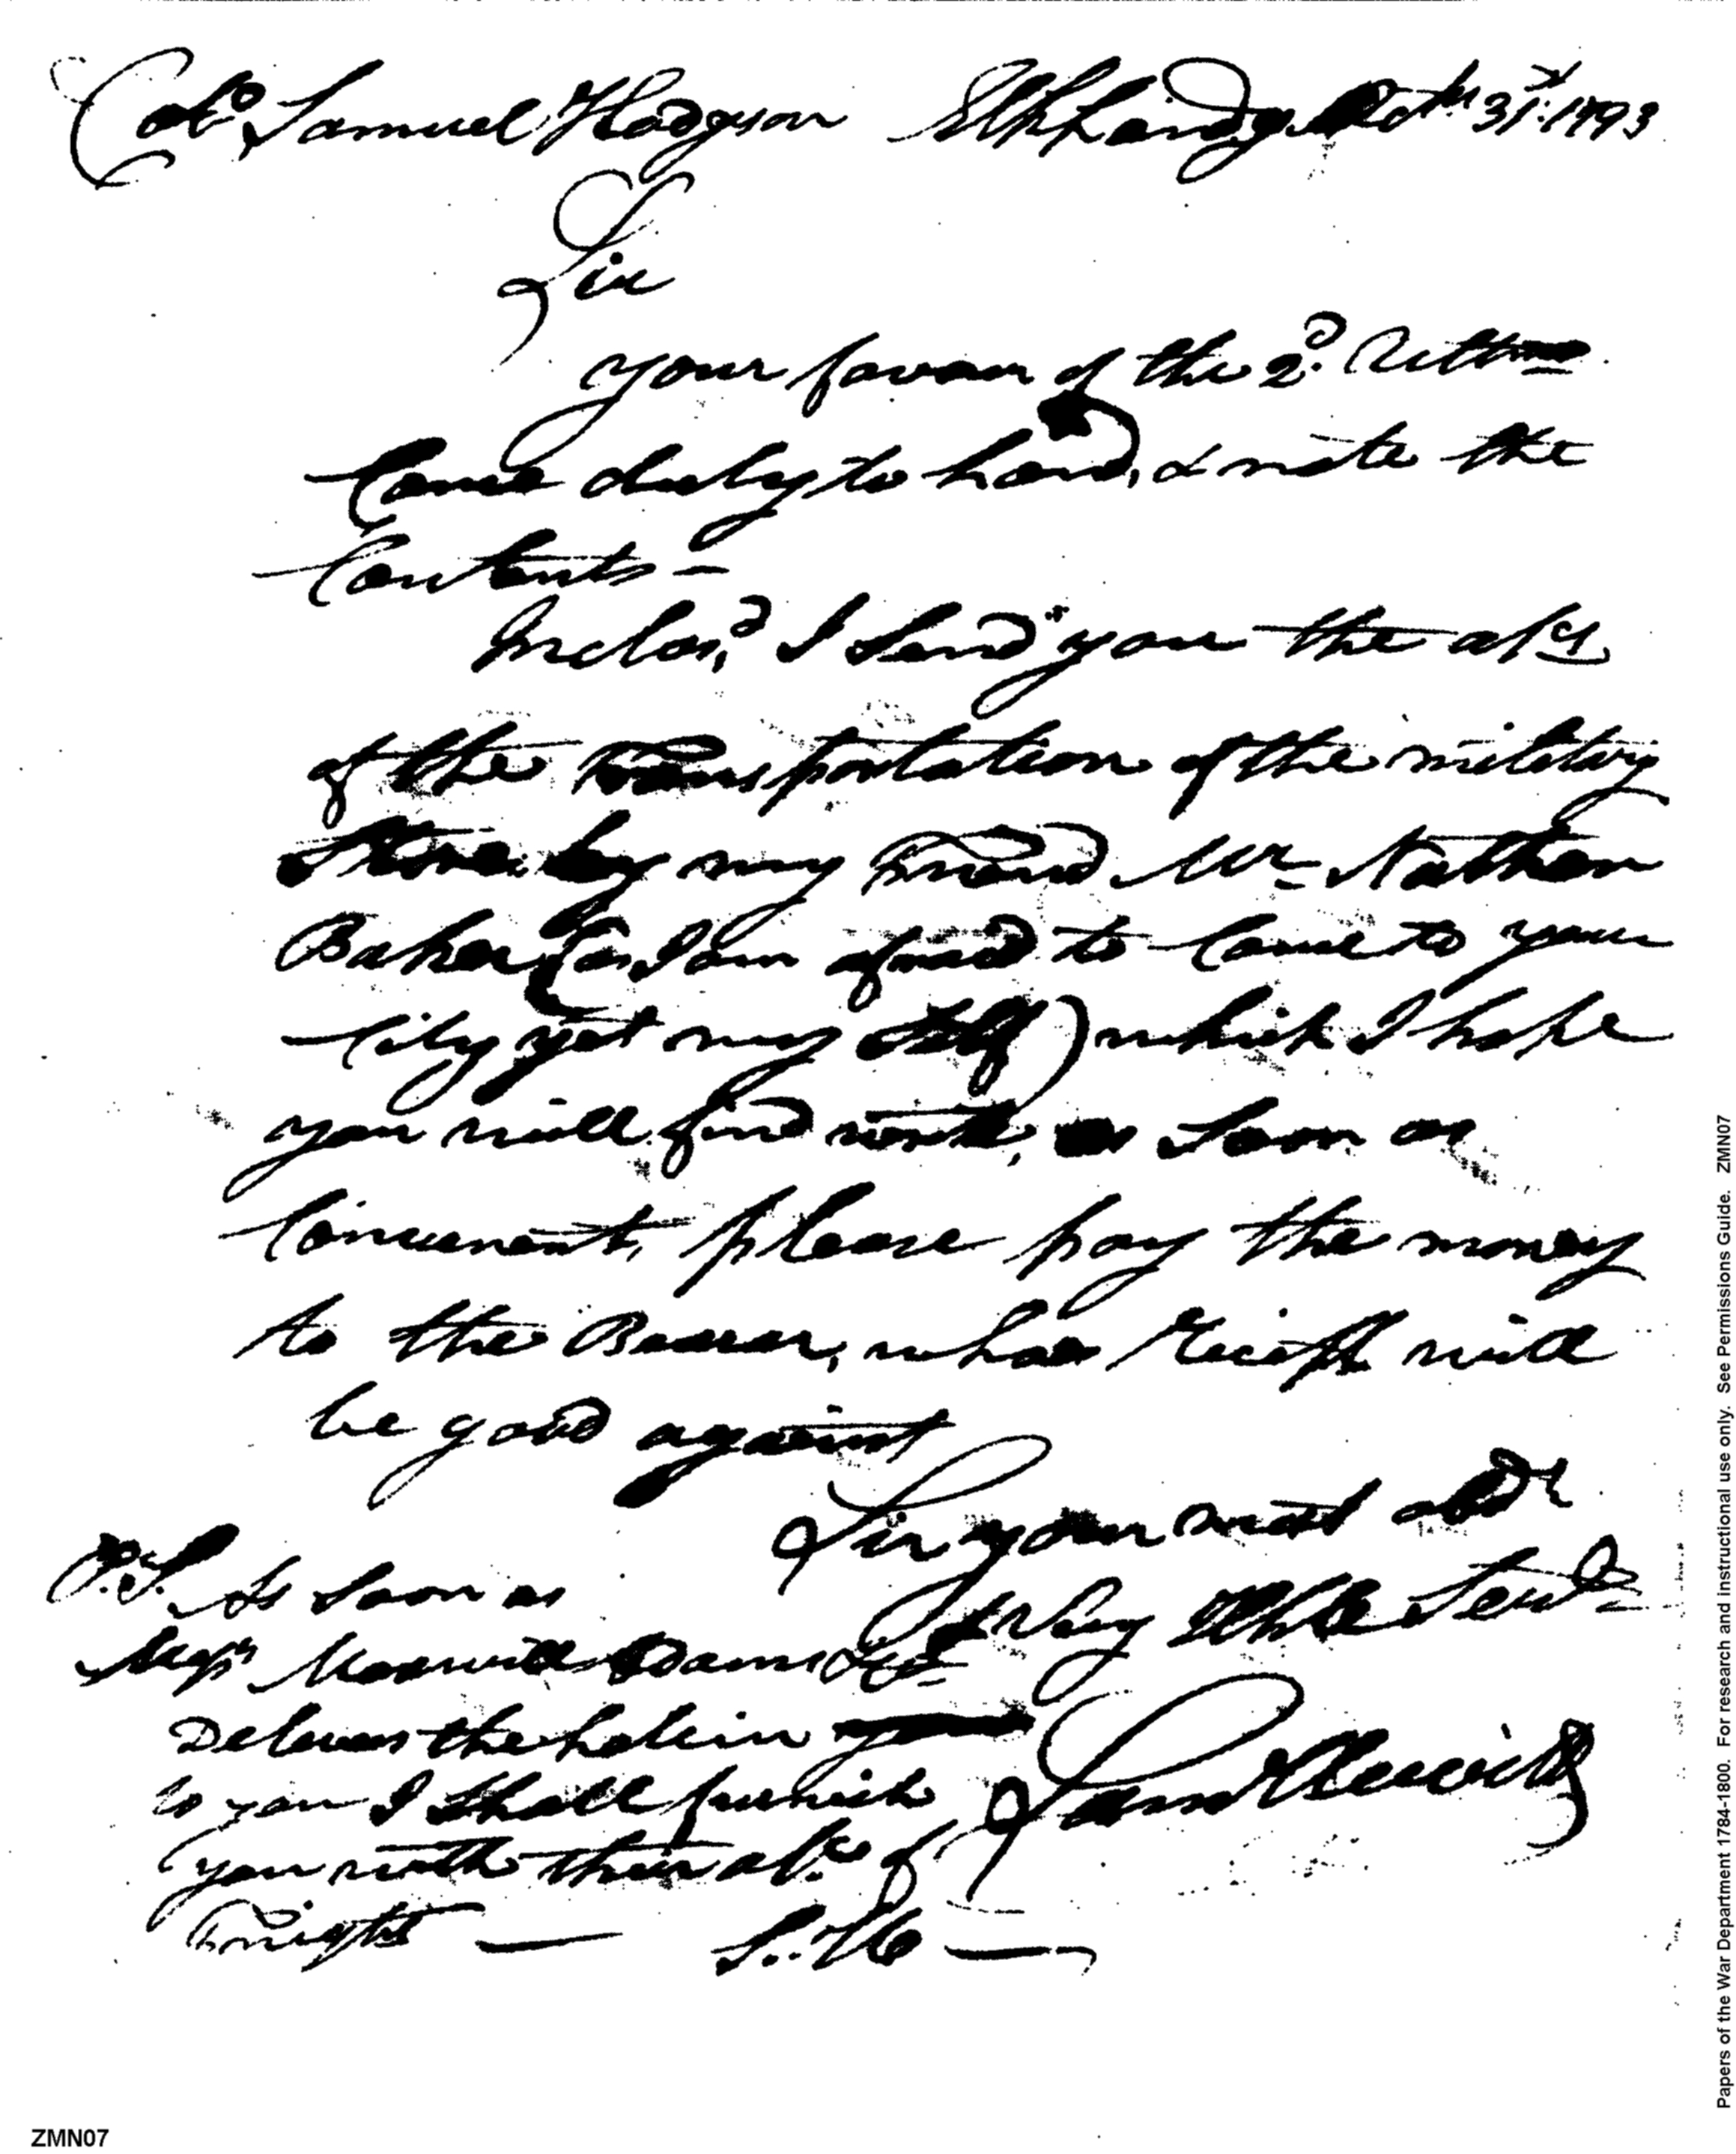 Colo. Samuel Hodgson Elkhandg Octr. 31st. 1793
Sir
your favour of the 2d. Ultmo
Came duly to hand, & note the
Contents –
Inclos'd I Send you the a/cs
of the transportation of the military
Stores by my friend Mr. Nathan
Baker (as I am afraid to Come to your
City yet my Self) which I hope
you will find wright, as Soon as
Convenent, please pay the money
to the Bearer, whose Receipt will
be good against
Sir your most obdt.
& Very Hble Servt.
Saml. Hewitt
P.S. As Soon as
Messrs Adams &Co
Delivers the hol in
to you I Shall furnish
you with their a/c of
Freight — S. H —
Papers of the War Department 1784-1800. For research and instructional use only. See Permissions Guide. ZMN07
ZMN07